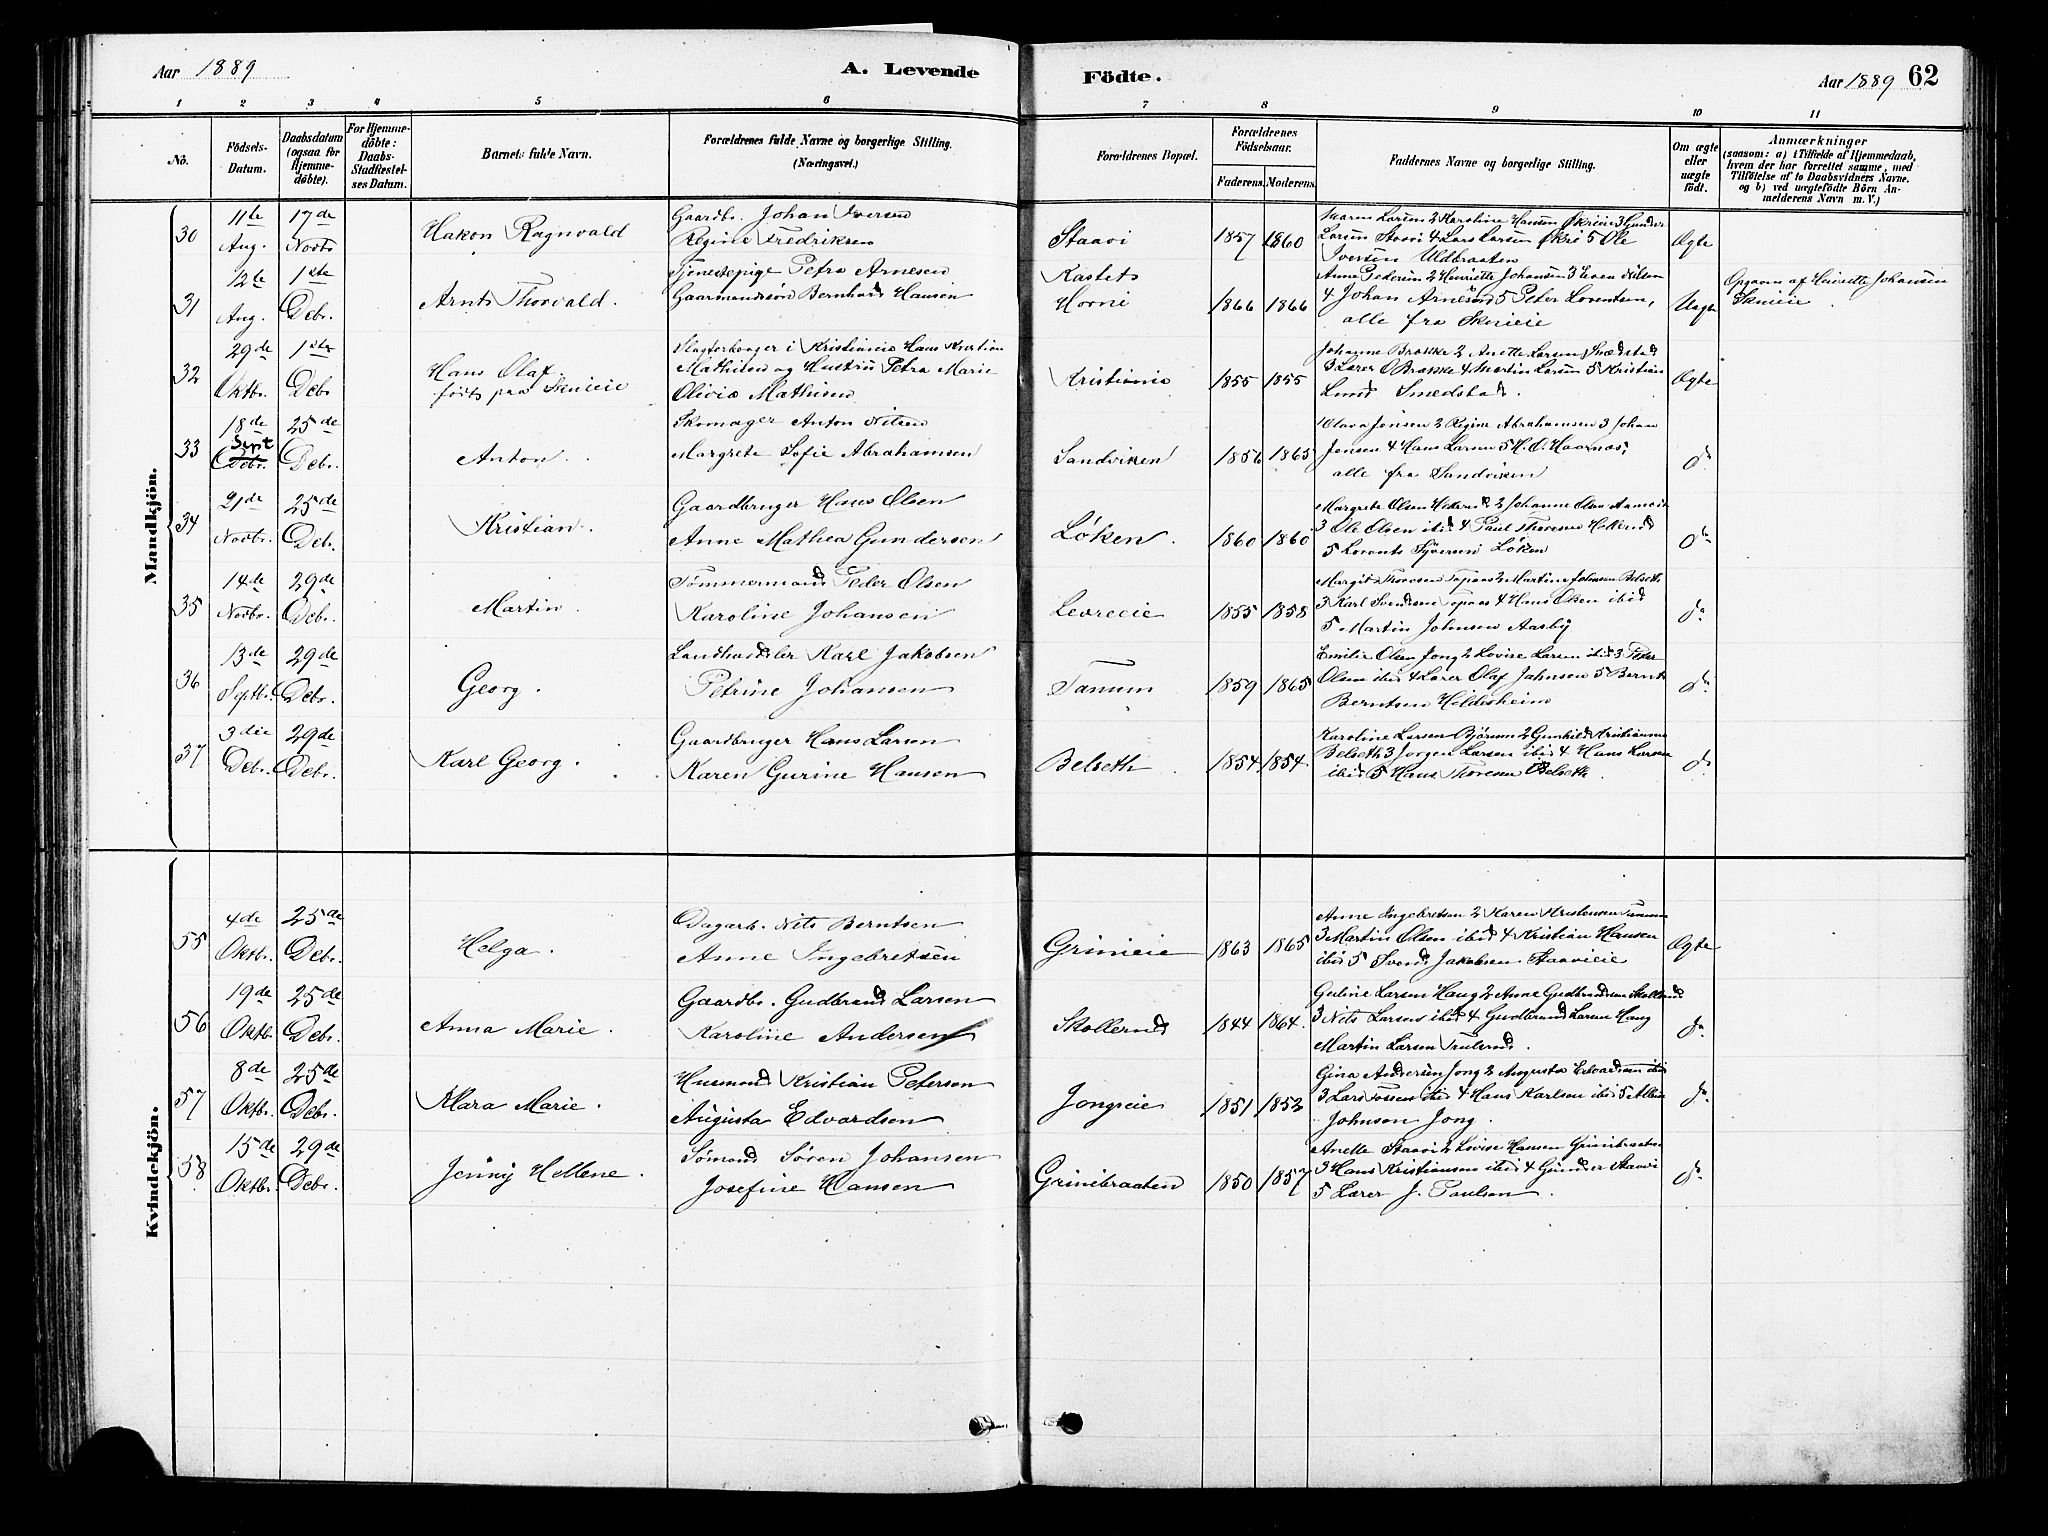 Aar 1889
A. Levende
Födte.
Aar 1889 62
1 2 3 4 5 6 7 8 9 10 11
No.
Födsels-Datum.
Daabsdatum (ogsaa for Hjemme-döbte).
For Hjemme-döbte: Daabs-Stadfæstel-ses Datum.
Barnets fulde Navn.
Forældrenes fulde Navne og borgerlige Stilling. (Næringsvei.)
Forældrenes Bopæl.
Forældrenes Födselsaar.
Faderens. Moderens.
Faddernes Navne og borgerlige Stilling.
Om ægte eller uægte födt.
Anmærkninger
(saasom: a) i Tilfælde af Hjemmedaab, hvem der har forrettet samme, med Tilföielse af to Daabsvidners Navne, og b) ved uægtefödte Börn An-melderens Navn m. V.)
Mandkjön.
30 11te Aug. 17de Novbr Hakon Ragnvald
Gaardbr. Johan Iversen
Regine Fredriksen
Staavi 1857 1860
Maren Larsen 2 Karoline Hansen Økrieie 3 Gunder
Larsen Staavi 4 Lars Larsen Økri 5 Ole
Iversen Uldbraaten
Ægte
31 12te Aug. 1ste Debr. Arnt Thorvald.
Tjenestepige Petra Arnesen
Gaarmandssøn Bernhard Hansen
Kastets
Horni 1866 1866
Anne Pedersen 2 Henriette Johansen 3 Even Nilsen
4 Johan Arnesen 5 Peter Lorentsen,
alle fra Skuieie
Uægte
Opgaven af Henriette Johansen
Skuieie
32 29de Oktbr. 1ste Debr Hans Olaf.
født paa Skuieie
Slagterborger i Kristiania Hans Kristian
Mathisen og Hustru Petra Marie
Olivia Mathisen
Kristiania 1855 1855
Johanne Brakke 2 Anette Larsen Smedstad
3 Lærer O Brakke 4 Martin Larsen 5 Kristian
Lund Smedstad.
Ægte
33 18de Septr Debr. 25de Debr. Anton.
Skomager Anton Nilsen
Margrete Sofie Abrahamsen
Sandviken 1856 1865
Olava Jensen 2 Regine Abrahamsen 3 Johan
Jensen 4 Hans Larsen 5 H. O. Haarnæs,
alle fra Sandviken
do
34 21de Novbr. 25de Debr. Kristian.
Gaardbruger Hans Olsen
Anne Mathea Gundersen
Løken. 1860 1860
Margrete Olsen 2 Johanne Olsen
3 Ole Olsen ibid 4 Paul Thoresen
5 Lorents Syversen Løken
do
35 14de Novbr. 29de Debr. Martin.
Tømmermand Peder Olsen
Karoline Johansen
Levreeie 1855 1858
Margit Thoresen Topaas 2 Martine Johnsen Belseth
3 Karl Svendsen Topaas 4 Hans Olsen ibid
5 Martin Johnsen Aasby
do
36 13de Septbr. 29de Debr. Georg.
Landhandler Karl Jakobsen
Petrine Johansen
Tanum 1859 1865
Emilie Olsen Jong 2 Lovise Larsen ibid 3 Peter
Olsen ibid 4 Lærer Olaf Johnsen 5 Bernt
Berntsen Hildesheim
do
37 3die Debr. 29de Debr. Karl Georg.
Gaardbruger Hans Larsen
Karen Gurine Hansen
Belseth 1854 1854
Karoline Larsen Bjørum 2 Gunhild Kristiansen
Belseth 3 Jørgen Larsen ibid 4 Hans Larsen
ibid 5 Hans Thoresen Belseth.
do
Kvindekjön.
55 4de Oktbr. 25de Debr. Helga.
Dagarb. Nils Berntsen
Anne Ingebretsen
Grinieie 1863 1865
Anne Ingebretsen 2 Karen Kristensen Tanum
3 Martin Olsen ibid 4 Kristian Hansen
ibid 5 Svend Jakobsen Staavieie
Ægte
56 19de Oktbr 25de Debr. Anna Marie.
Gaardbr. Gudbrand Larsen
Karoline Andersen
Skollerud 1844 1864.
Guline Larsen Haug 2 Anne Gudbrandsen Skollerud
3 Nils Larsen ibid 4 Gudbrand Larsen Haug
Martin Larsen.
do
57 8de Oktbr. 25de Debr. Klara Marie.
Husmand Kristian Petersen
Augusta Edvardsen
Jongseie 1851 1852
Gina Andersen Jong 2 Augusta Edvardsen ibid
3 Lars ibid 4 Hans Karlsen ibid 5
Johnsen Jong.
do
58 15de Oktbr. 29de Debr. Jenny Hellene.
Sømand Søren Johansen
Josefine Hansen
Grinibraaten 1850 1857
Anette Staavi 2 Lovise Hansen Grinibraaten
3 Hans Kristiansen ibid 4 Gunder Staavi
5 Lærer J. Paulsen.
do